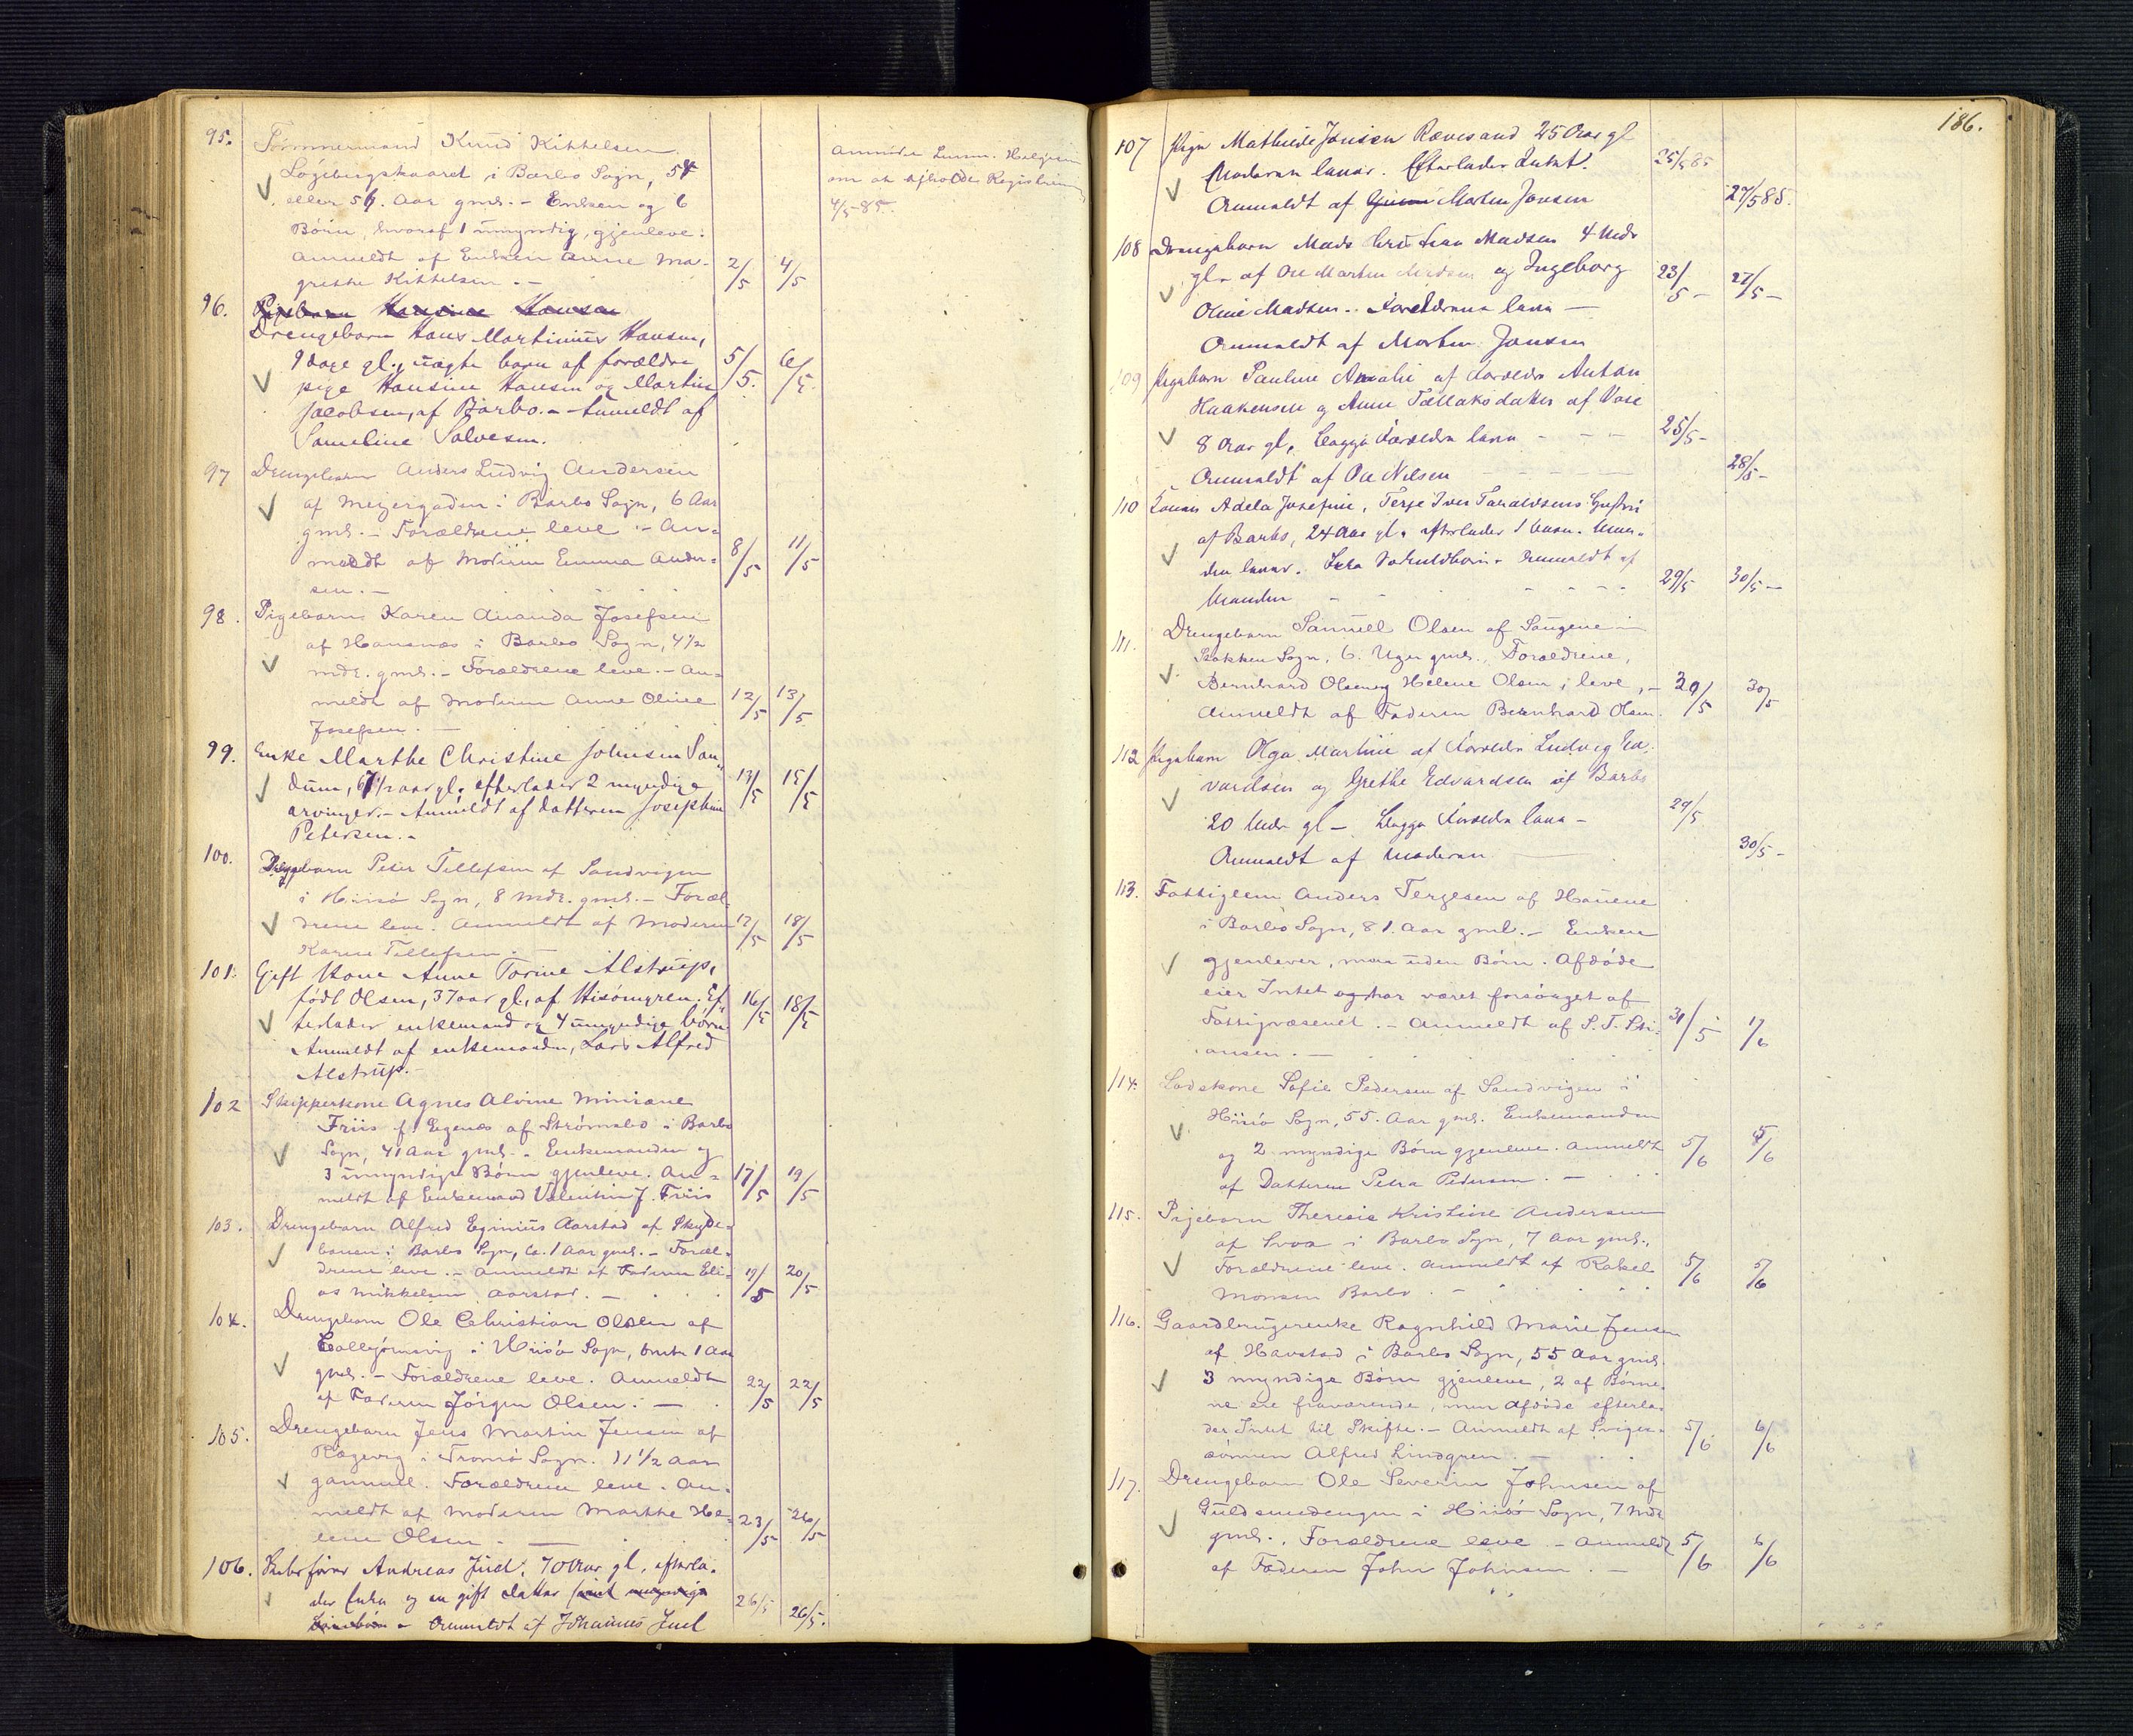 95. Tømmermand Knud Kittelsen
Løgebergskaaret i Barbo Sogn, 54
eller 56. Aar gml. - Enken og 6
Børn, hvoraf 1 umyndig, gjenleve.
Anmeldt af Enken Anne Ma-
grethe Kittelsen. - 2/5 4/5
Anmodet Lensm.
om at afholde Registrering
4/5-85.
96. Pigebarn Hansine Hansen
Drengebarn Hans Martinius Hansen,
9 dage gl., uægte barn af forældre
pige Hansine Hansen og Martin 5/5. 6/5.
Jacobsen, af Barbo. - Anmeldt af
Sameline Salvesen.
97 Drengebarn Anders Ludvig Andersen
af Meiergaden i Barbo Sogn, 6 Aar
gml. - Forældrene leve - An-
meldt af Moderen Emma Ander- 8/5 11/5
sen. -
98. Pigebarn Karen Ananda Josefsen
af Hansnæs i Barbo Sogn, 4 1/2
mdr. gml. - Forældrene leve. - An-
meldt af Moderen Anne Oline 12/5 13/5
Josefsen. -
99. Enke Marthe Christine Johnsen Son-
dum, 67 1/2 aar gl. efterlader 2 myndige 13/5 15/5
arvinger. - Anmeldt af datteren Josephine
Petersen. -
100. Drengebarn Peter Tellefsen af Sandvigen
i Hisø Sogn, 8 Mdr. gml. - Foræl-
drene leve. Anmeldt af Moderen 17/5 18/5
Karen Tellefsen. -
101. Gift Kone Anne Torine Alstrup,
født Olsen, 37 aar gl., af Hisømyren. Ef- 16/5 18/5
terlader enkemand og 4 umyndige børn.
Anmeldt af enkemanden, Lars Alfred
Alstrup. -
102 Skipperkone Agnes Alvine Miniane
Friis f. Egenæs af Strømsbo i Barbo
Sogn, 41 Aar gml. - Enkemanden og
3 umyndige Børn gjenleve. An-
meldt af Enkemand Valentin J. Friis 17/5 19/5
103. Drengebarn Alfred Eginius Aarstad af Skyde-
banen i Barbo Sogn, Ca. 1 Aar gml. - Foræl-
drene leve. - Anmeldt af Faderen Eli-
as Mikkelsen Aarstad. - 19/5 20/5
104. Drengebarn Ole Christian Olsen af
Kolbjørnsvig i Hisø Sogn, omtr. 1 Aar
gml. - Forældrene leve. Anmeldt
af Faderen Jørgen Olsen. - 22/5 22/5
105. Drengebarn Jens Martin Jensen af
Rægevig i Tromø Sogn. 11 1/2 Aar
gammel. Forældrene leve. An-
meldt af Moderen Marthe He- 23/5 26/5
lene Olsen. -
106. Skibsfører Andreas Juel, 70 Aar gl. efterla-
der Enke og en gift datter samt umyndige
- Anmeldt af Johannes Juel 26/5 26/5.
186.
107 Pige Mathilde Jensen Rævesand 25 Aar gl
Moderen lever. Efterlader Intet. 25/5 85
Anmeldt af Morten Jensen 27/5 85.
108 Drengebarn Mads Kristian Madsen 4 Mdr
gl. af Ole Martin Madsen og Ingeborg 23/5 - 27/5 -
Oline Madsen. - Forældrene leve -
Anmeldt af Morten Jensen
109 Pigebarn Pauline Amalie af Forældre Anton
Haakensen og Anne Tellaksdatter af Vase
8 Aar gl, begge Forældre leve - - - 25/5 -
Anmeldt af Ole Nilsen 28/5 -
110 Konen Adela Josefine, Terje Iver Taraldsens Hustru
af Barbo, 24 Aar gl. efterlader 1 barn. Man-
den lever. Anmeldt af
Manden 29/5 30/5 -
111. Drengebarn Samuell Olsen af Saugene i
Stokken Sogn, 6. Uger gml., Forældrene,
Bernhard Olsen og Helene Olsen, leve, - 30/5 30/5
Anmeldt af Faderen Bernhard Olsen.
112 Pigebarn Olga Martine af Forældre Ludvig Ed-
vardsen og Grethe Edvardsen af Barbo
20 Mdr gl - begge Forældre leve - 29/5
Anmeldt af Moderen 30/5 -
113. Fattiglem Anders Tergesen af Hauene
i Barbo Sogn, 81. Aar gml. - Enken
gjenlever, men uden Børn. Afdøde
eier Intet og har været forsørget af
Fattigvæsenet. - Anmeldt af S. T. Sti- 31/5 1/6
ansen. -
114. Lodskone Sofie Pedersen af Sandvigen i
Hisø Sogn, 55. Aar gml. Enkemanden
og 2 myndige Børn gjenleve. Anmeldt 5/6 5/6
af Datteren Petra Pedersen. -
115. Pigebarn Theresie Kristine Andersen
af Svoa i Barbo Sogn, 7 Aar gml.,
Forældrene leve. Anmeldt af Rakel 5/6 5/6
Monsen Barbo. -
116. Gaardbrugerenke Ragnhild Marie Jensen
af Havstad i Barbo Sogn, 55 Aar gml.
3 myndige Børn gjenleve, 2 af Børne-
ne ere fraværende, men Afdøde efterla-
der Intet til Skifte. - Anmeldt af Sviger- 5/6 6/6
sønnen Alfred Lindgren. -
117. Drengebarn Ole Severin Johnsen af
Guldsmedengen i Hisø Sogn, 7 Mdr
gml.. Forældrene leve - Anmeldt 5/6 6/6
af Faderen John Johnsen. -